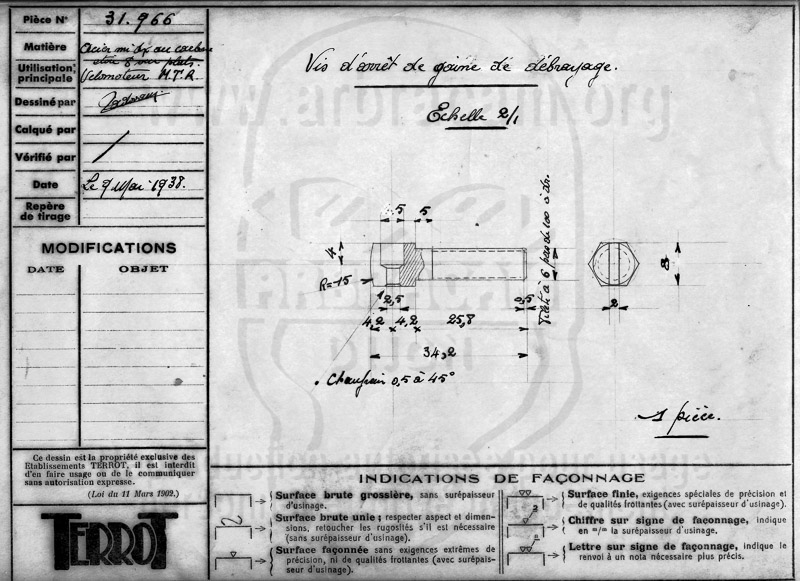 Pièce N° 31.966
Matière Acier mi-dx au carbone
étiré 8 sur plats.
Utilisation principale Vélomoteur M.T.R.
Dessiné par
Calqué par
Vérifié par
Date Le 9 Mai 1938.
Repère de tirage
MODIFICATIONS
DATE OBJET
Ce dessin est la propriété exclusive des
Etablissements TERROT, il est interdit
d'en faire usage ou de le communiquer
sans autorisation expresse.
(Loi du 11 Mars 1902.)
TERROT
Vis d'arrêt de gaine de débrayage.
Echelle 2/1
5 5
4
R=15
2,5
4,2 4,2 25,8
0,5
34,2
Chanfrein 0,5 à 45°
Fileté à 6 pas de 100 à dr.
8
2
1 pièce.
INDICATIONS DE FAÇONNAGE
Surface brute grossière, sans surépaisseur
d'usinage.
Surface brute unie ; respecter aspect et dimen-
sions, retoucher les rugosités s'il est nécessaire
(sans surépaisseur d'usinage).
Surface façonnée sans exigences extrêmes de
précision, ni de qualités frottantes (avec surépais-
seur d'usinage).
Surface finie, exigences spéciales de précision et
de qualités frottantes (avec surépaisseur d'usinage).
3
Chiffre sur signe de façonnage, indique
en m/m la surépaisseur d'usinage.
Lettre sur signe de façonnage, indique le
renvoi à un nota nécessaire plus précis.